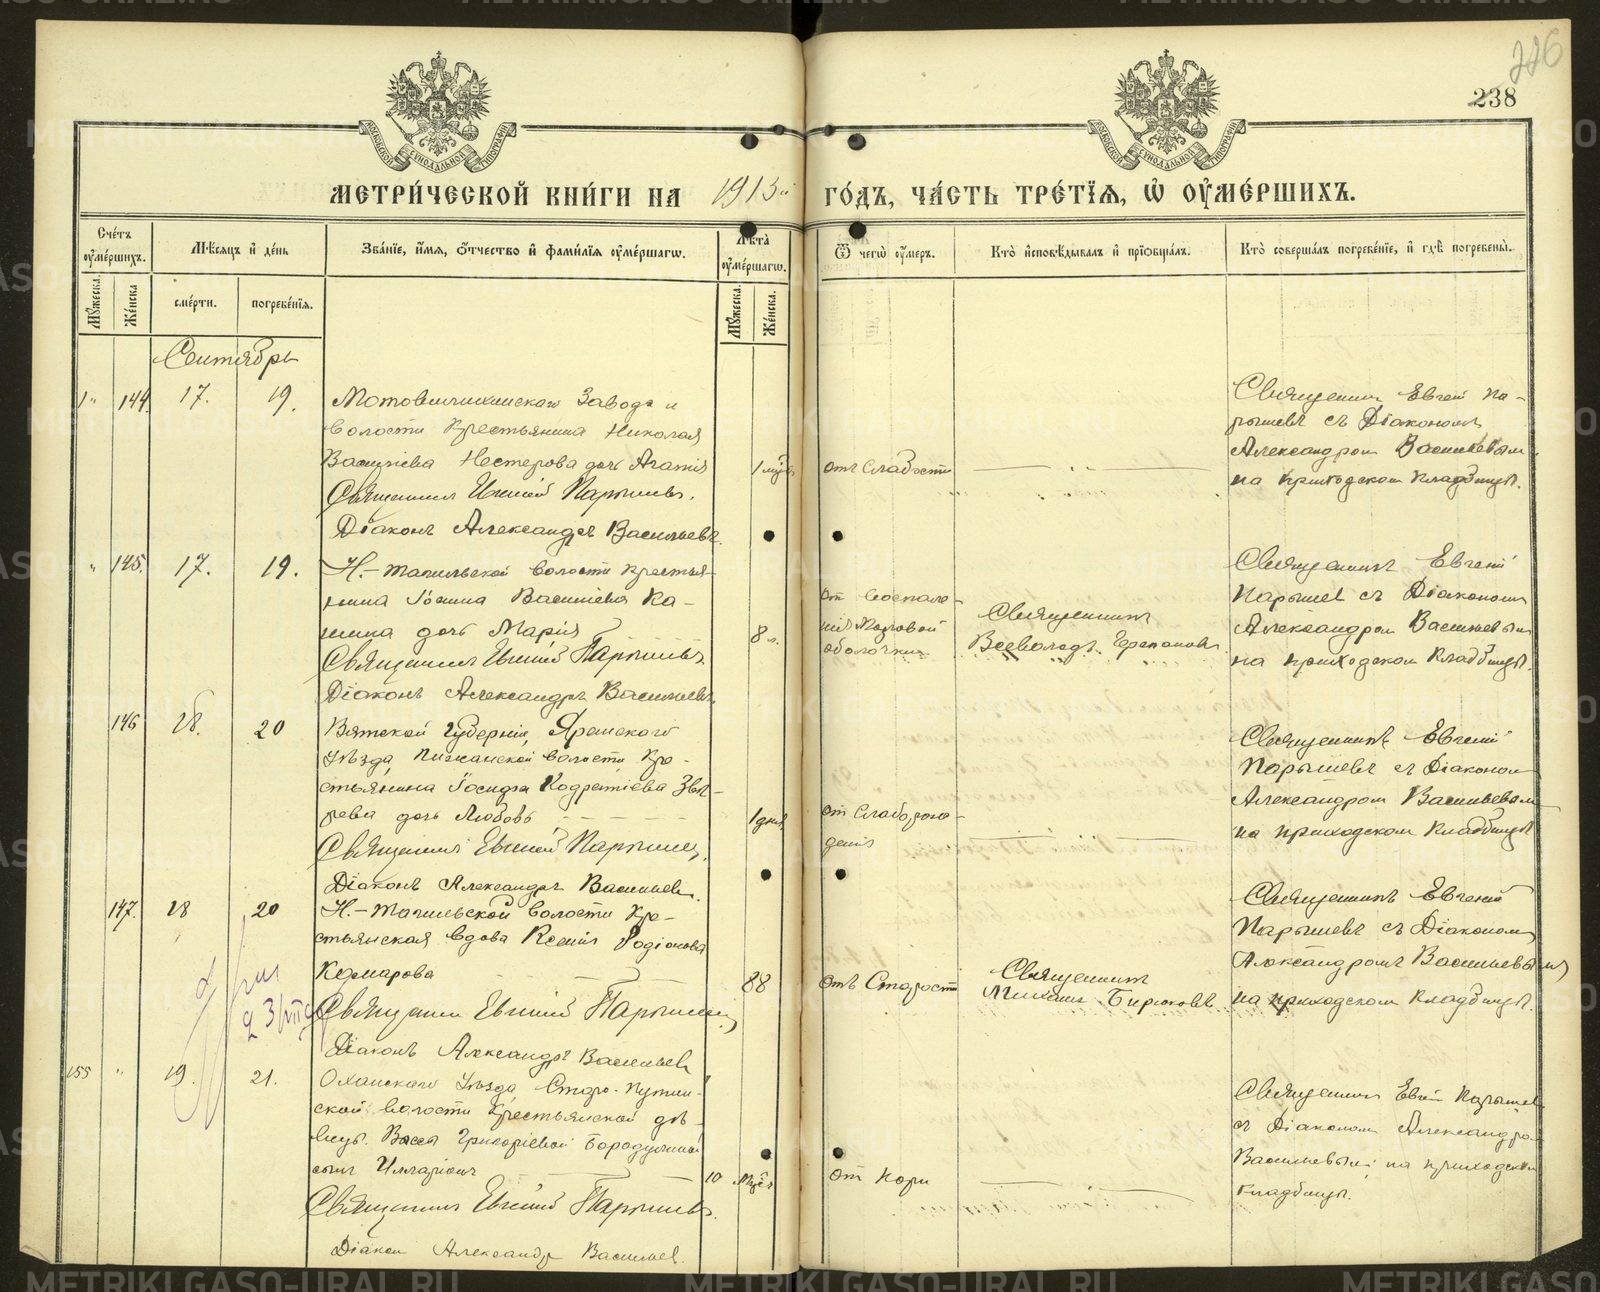 226
238
МОСКОВСКОЙ СѴНОДАЛЬНОЙ ТИПОГРАФІИ
МОСКОВСКОЙ СѴНОДАЛЬНОЙ ТИПОГРАФІИ
МЕТРИ́ЧЕСКОЙ КНИ́ГИ НА 1913й ГО́ДЪ, ЧА́СТЬ ТРЕ́ТІѦ, Ѡ҆ ОУ҆МЕ́РШИХЪ.
Сче́тъ оу҆ме́ршихъ.
Мѣ́сяцъ и҆ де́нь
Зва́ніе, и҆́мя, ѻ҆́тчество и҆ фами́лія оу҆ме́ршагѡ.
Лѣ́та оу҆ме́ршагѡ.
Ѿ чегѡ̀ оу҆́меръ.
Кто̀ и҆сповѣ́дывалъ и҆ прїѻбща́лъ.
Кто̀ соверша́лъ погребе́ніе, и҆ гдѣ̀ погребены̀.
Мꙋ́жеска.
Же́нска
сме́рти.
погребе́нія.
Мꙋ́жеска.
Же́нска.
Сентябрь
1" 144. 17. 19.
Мотовилихинскаго Завода и
волости Крестьянина Николая
Василіева Нестерова дочь Агатія
Священникъ Евгеній Парышевъ.
Діаконъ Александръ Васильевъ.
1 мѣс.
отъ Слабости
Священник Евгеній Па-
рышевъ съ Діакономъ
Александром Васильевым
на приходском кладбищѣ.
" 145. 17. 19.
Н.-Тагильской волости крестья-
нина Іоанна Василіева Ка-
шина дочь Марія
Священникъ Евгеній Парышевъ.
Діаконъ Александръ Васильевъ.
8 л.
от воспале-
нія мозговой
оболочки
Священникъ
Всеволодъ Черепановъ.
Священникъ Евгеній
Парышев съ Діакономъ
Александром Васильевым
на приходском кладбищѣ.
146 18. 20
Вятской губерніи, Яранского
уѣзда Пижанской волости Кре-
стьянина Іосифа Кодратіева Звѣ-
рева дочь Любовь
Священникъ Евгеній Парышев.
Діаконъ Александръ Васильевъ.
1 дня
от Слаборож-
денія
Священникъ Евгеній
Парышевъ съ Діаконом
Александром Васильевым
на приходском кладбищѣ
147. 18 20
Н.-Тагильской волости Кре-
стьянская вдова Ксенія Родіонова
Комарова
Священник Евгеній Парышев
Діаконъ Александръ Васильев
88
отъ Старости
Священникъ
Михаилъ Бирюковъ.
Священникъ Евгеній
Парышевъ съ Діакономъ
Александромъ Васильевымъ
на приходском кладбищѣ.
155 " 19. 21.
Оханскаго уѣзда Старо-Путин-
ской волости Крестьянской дѣ-
вицы Вассы Григоріевой Бородулиной
сынъ Илларіонъ
Священникъ Евгеній Парышевъ.
Діакон Александръ Васильев.
10 мѣс.
от Кори
Священник Евгеній Парышев
съ Діаконом Александро-
Васильевым на приходском
кладбищѣ.
METRIKI.GASO-URAL.RU